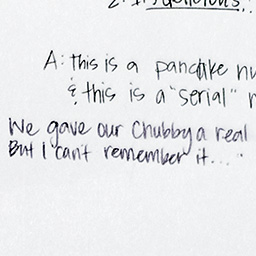 2. It's delicious.
A: this is a pancake
& this is a "serial"
We gave our chubby a real
But I can't remember it... "